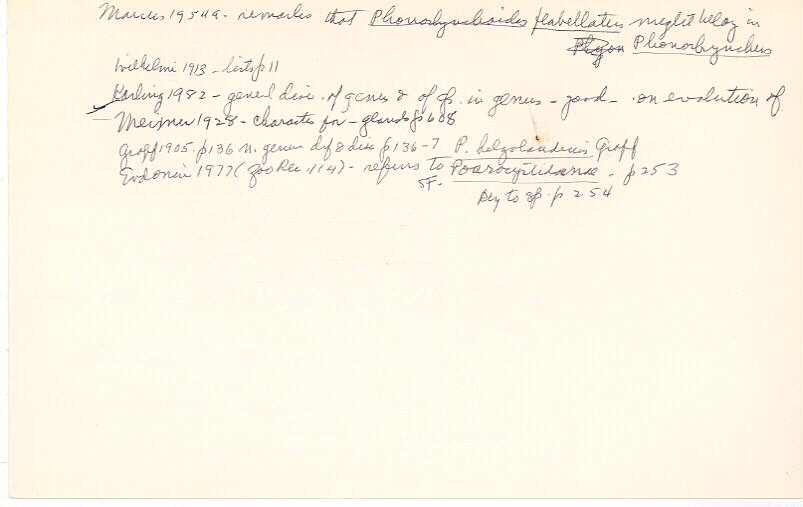 Marcus 1954a - remarks that Phonorhynchoides flabellatus might belong in
Phonorhynchus
Wilhelmi 1913 - lists p 11
Karling 1982 - general disc. of genus & of sp. in genus - good - on evolution of
Meixner 1928 - character for - glands p 608
Graff 1905 . p136 n. genus def & disc p 136-7 P. helgolandicus Graff
Evdonin 1977 (Zoo Rec 114) - refers to Porrocystidinae . p 253
SF.
Key to sp. p 254